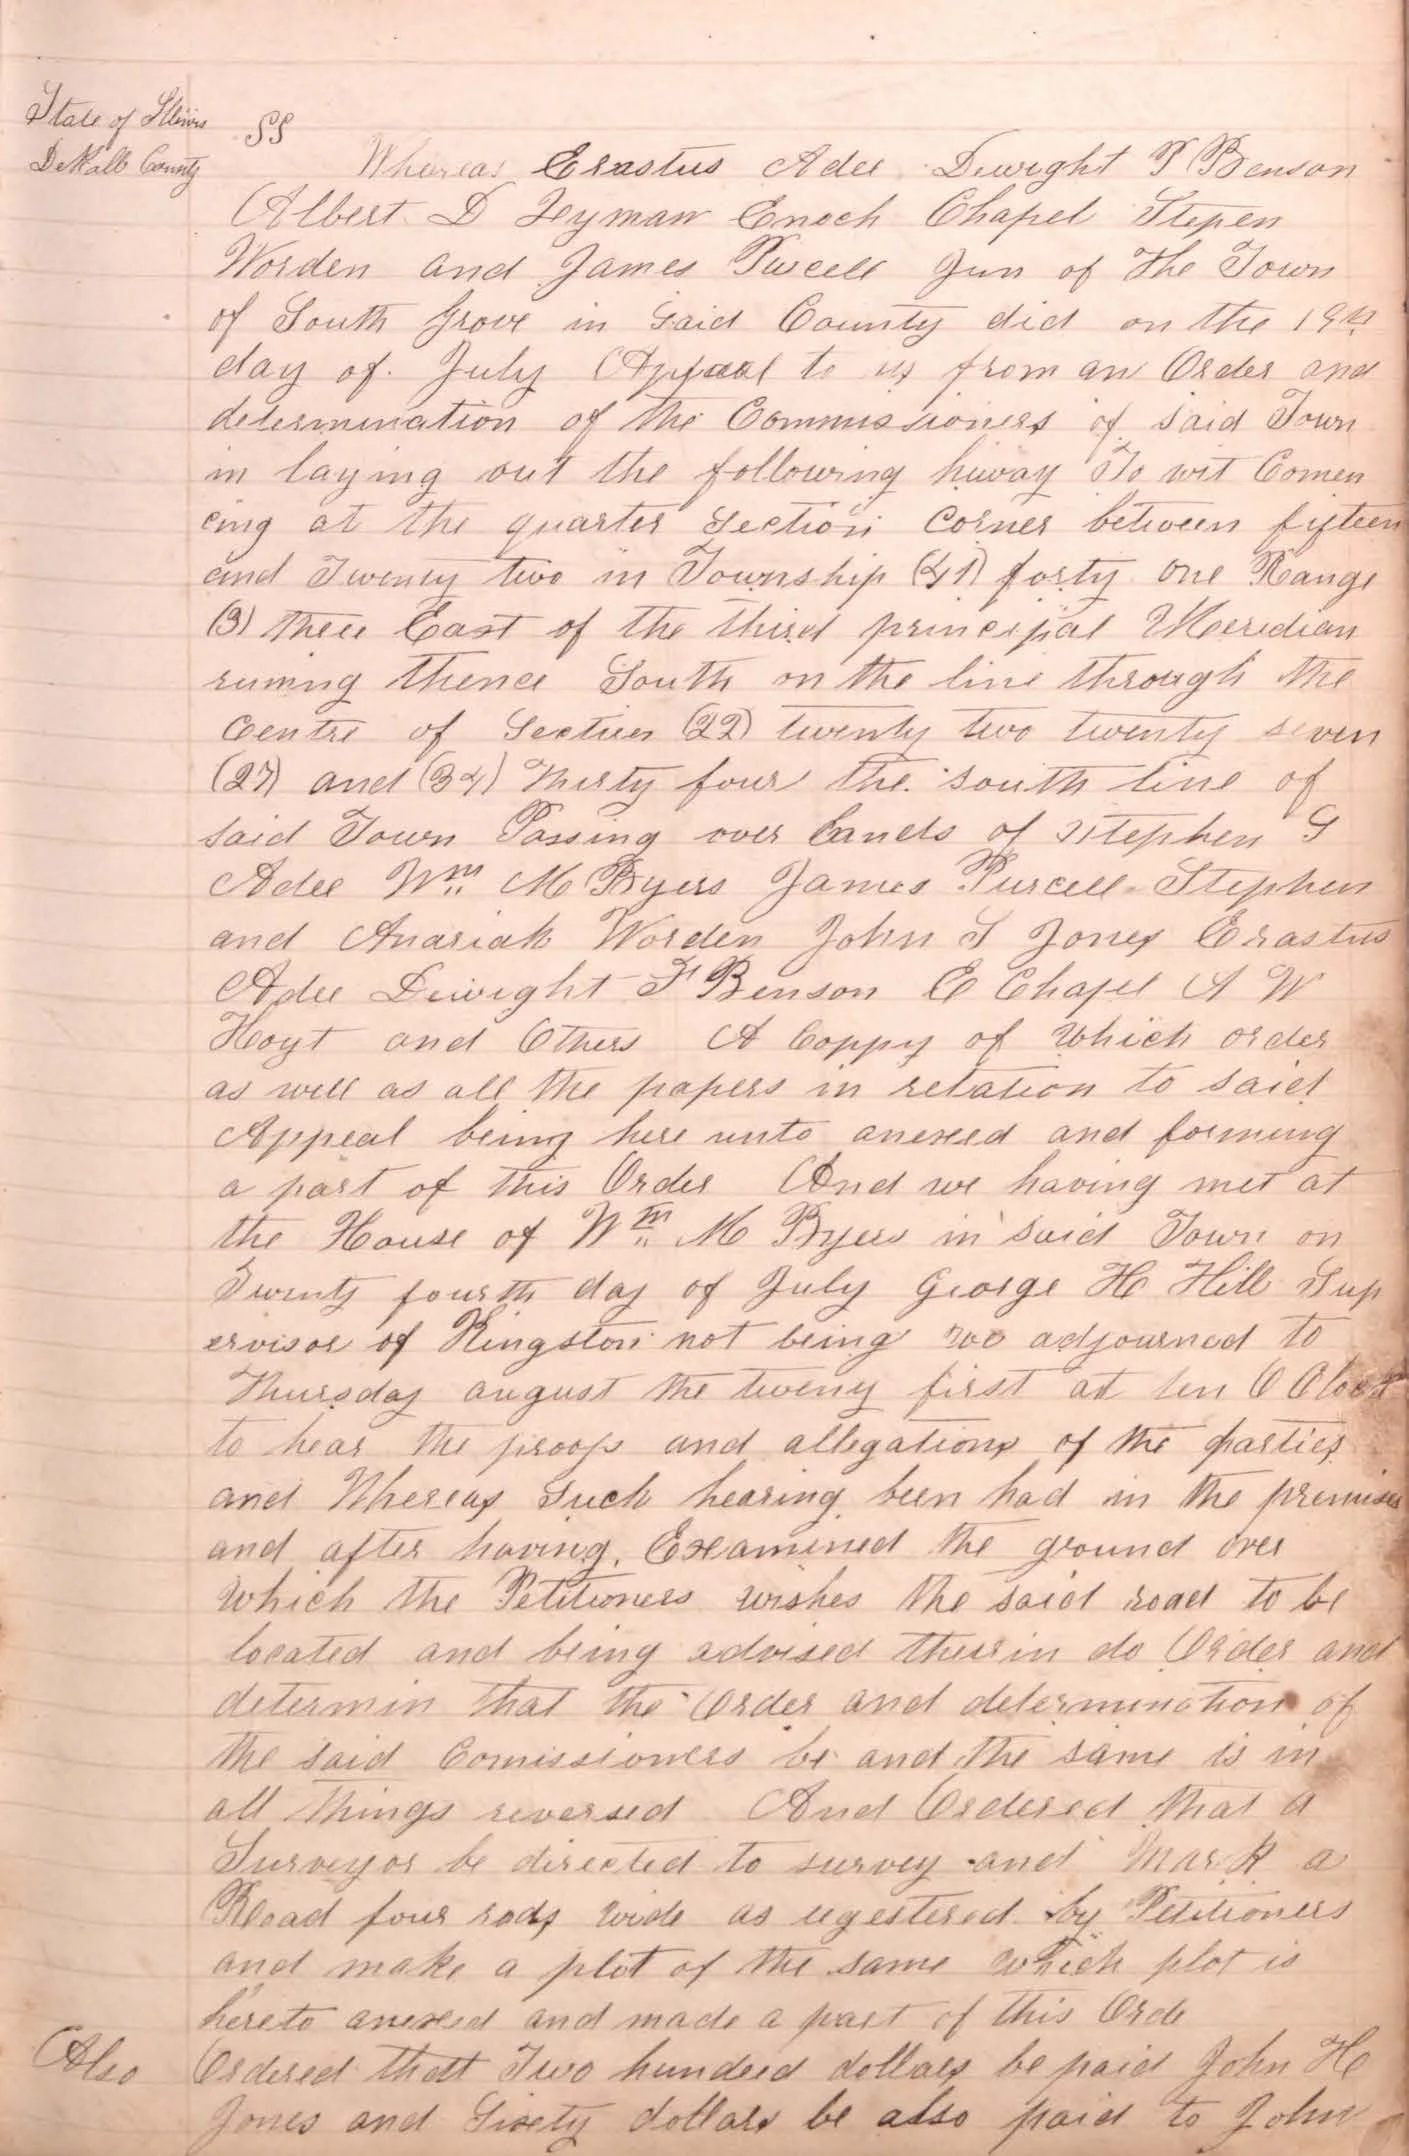 State of Illinois
DeKalb County
SS
Whereas Erastus Adee Dwight P Benson
Albert D Heyman Enoch Chapel Stepen
Worden and James Purcell Jun of the Town
of South Grove in said County did on the 19th
day of July Appeal to us from an Order and
determination of the Commissioners of said Town
in laying out the following hiway To wit Comen
cing at the quarter section corner between fifteen
and Twenty two in Township (41) forty one Range
(3) three East of the third principal Meridian
runing thence South on the line through the
Centre of Section (22) twenty two twenty seven
(27) and (34) thirty four the south line of
said Town Passing over lands of Stephen G
Adee Wm M Byers James Purcell Stephen
and Anariah Worden John S Jones Erastus
Adee Dwight F Benson E Chapel A W
Hoyt and Others A Coppy of which order
as well as all the papers in relation to said
Appeal being here unto anexed and forming
a part of this Order And we having met at
the House of Wm M Byers in said Town on
Twenty fourth day of July George H Hill Sup
ervisor of Kingston not being adjourned to
Thursday august the tweny first at ten O Clock
to hear the proofs and allegations of the parties
and Whereas Such hearing been had in the premises
and after having Examined the ground over
which the Petitioners wishes the said road to be
located and being advised therin do Order and
determin that the Order and determination of
the said Comissioners be and the same is in
all things reversed And Ordered that a
Surveyor be directed to survey and Mark a
Road four rods wide as by Petitioners
and make a plot of the same which plot is
hereto anexed and made a part of this Orde
Also Ordered that Two hundred dollars be paid John H
Jones and Sixty dollars be also paid to John